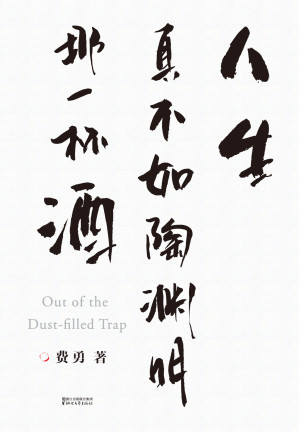 人生
真不如陶渊明
那一杯酒
Out of the
Dust-filled Trap
费勇 著
浙江文艺出版社